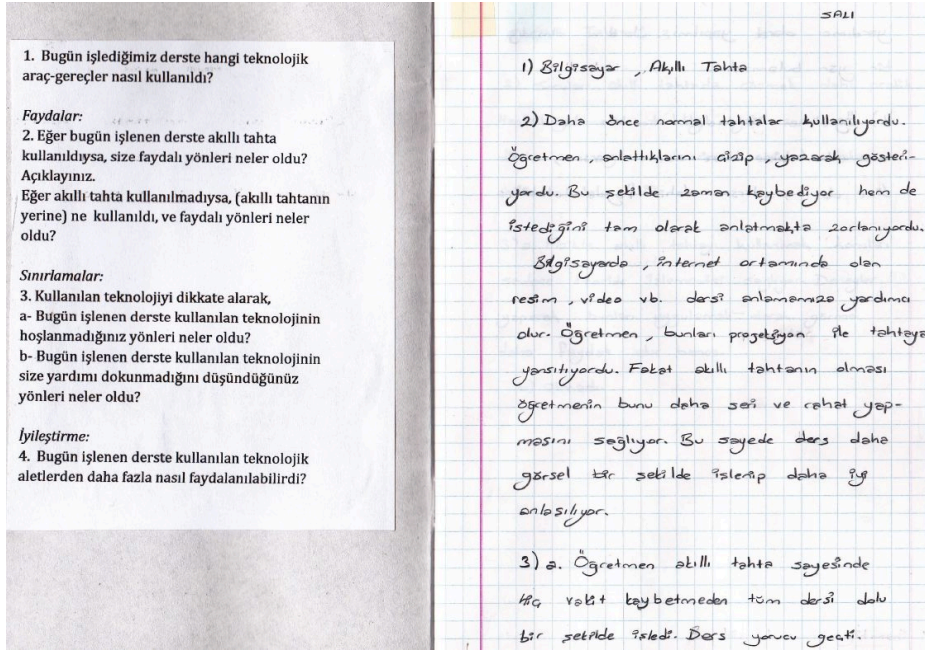 1. Bugün işlediğimiz derste hangi teknolojik
araç-gereçler nasıl kullanıldı?
Faydalar:
2. Eğer bugün işlenen derste akıllı tahta
kullanıldıysa, size faydalı yönleri neler oldu?
Açıklayınız.
Eğer akıllı tahta kullanılmadıysa, (akıllı tahtanın
yerine) ne kullanıldı, ve faydalı yönleri neler
oldu?
Sınırlamalar:
3. Kullanılan teknolojiyi dikkate alarak,
a- Bugün işlenen derste kullanılan teknolojinin
hoşlanmadığınız yönleri neler oldu?
b- Bugün işlenen derste kullanılan teknolojinin
size yardımı dokunmadığını düşündüğünüz
yönleri neler oldu?
İyileştirme:
4. Bugün işlenen derste kullanılan teknolojik
aletlerden daha fazla nasıl faydalanılabilirdi?
SALI
1) Bilgisayar, Akıllı Tahta
2) Daha önce normal tahtalar kullanılıyordu.
Öğretmen, anlattıklarını çizip, yazarak gösteri-
yordu. Bu şekilde zaman kaybediyor hem de
istediğini tam olarak anlatmakta zorlanıyordu.
Bilgisayarda, internet ortamında olan
resim, video vb. dersi anlamamıza yardımcı
olur. Öğretmen, bunları projeksiyon ile tahtaya
yansıtıyordu. Fakat akıllı tahtanın olması
öğretmenin bunu daha seri ve rahat yap-
masını sağlıyor. Bu sayede ders daha
görsel bir şekilde işlenip daha iyi
anlaşılıyor.
3) a. Öğretmen akıllı tahta sayesinde
hiç vakit kaybetmeden tüm dersi dolu
bir şekilde işledi. Ders yorucu geçti.